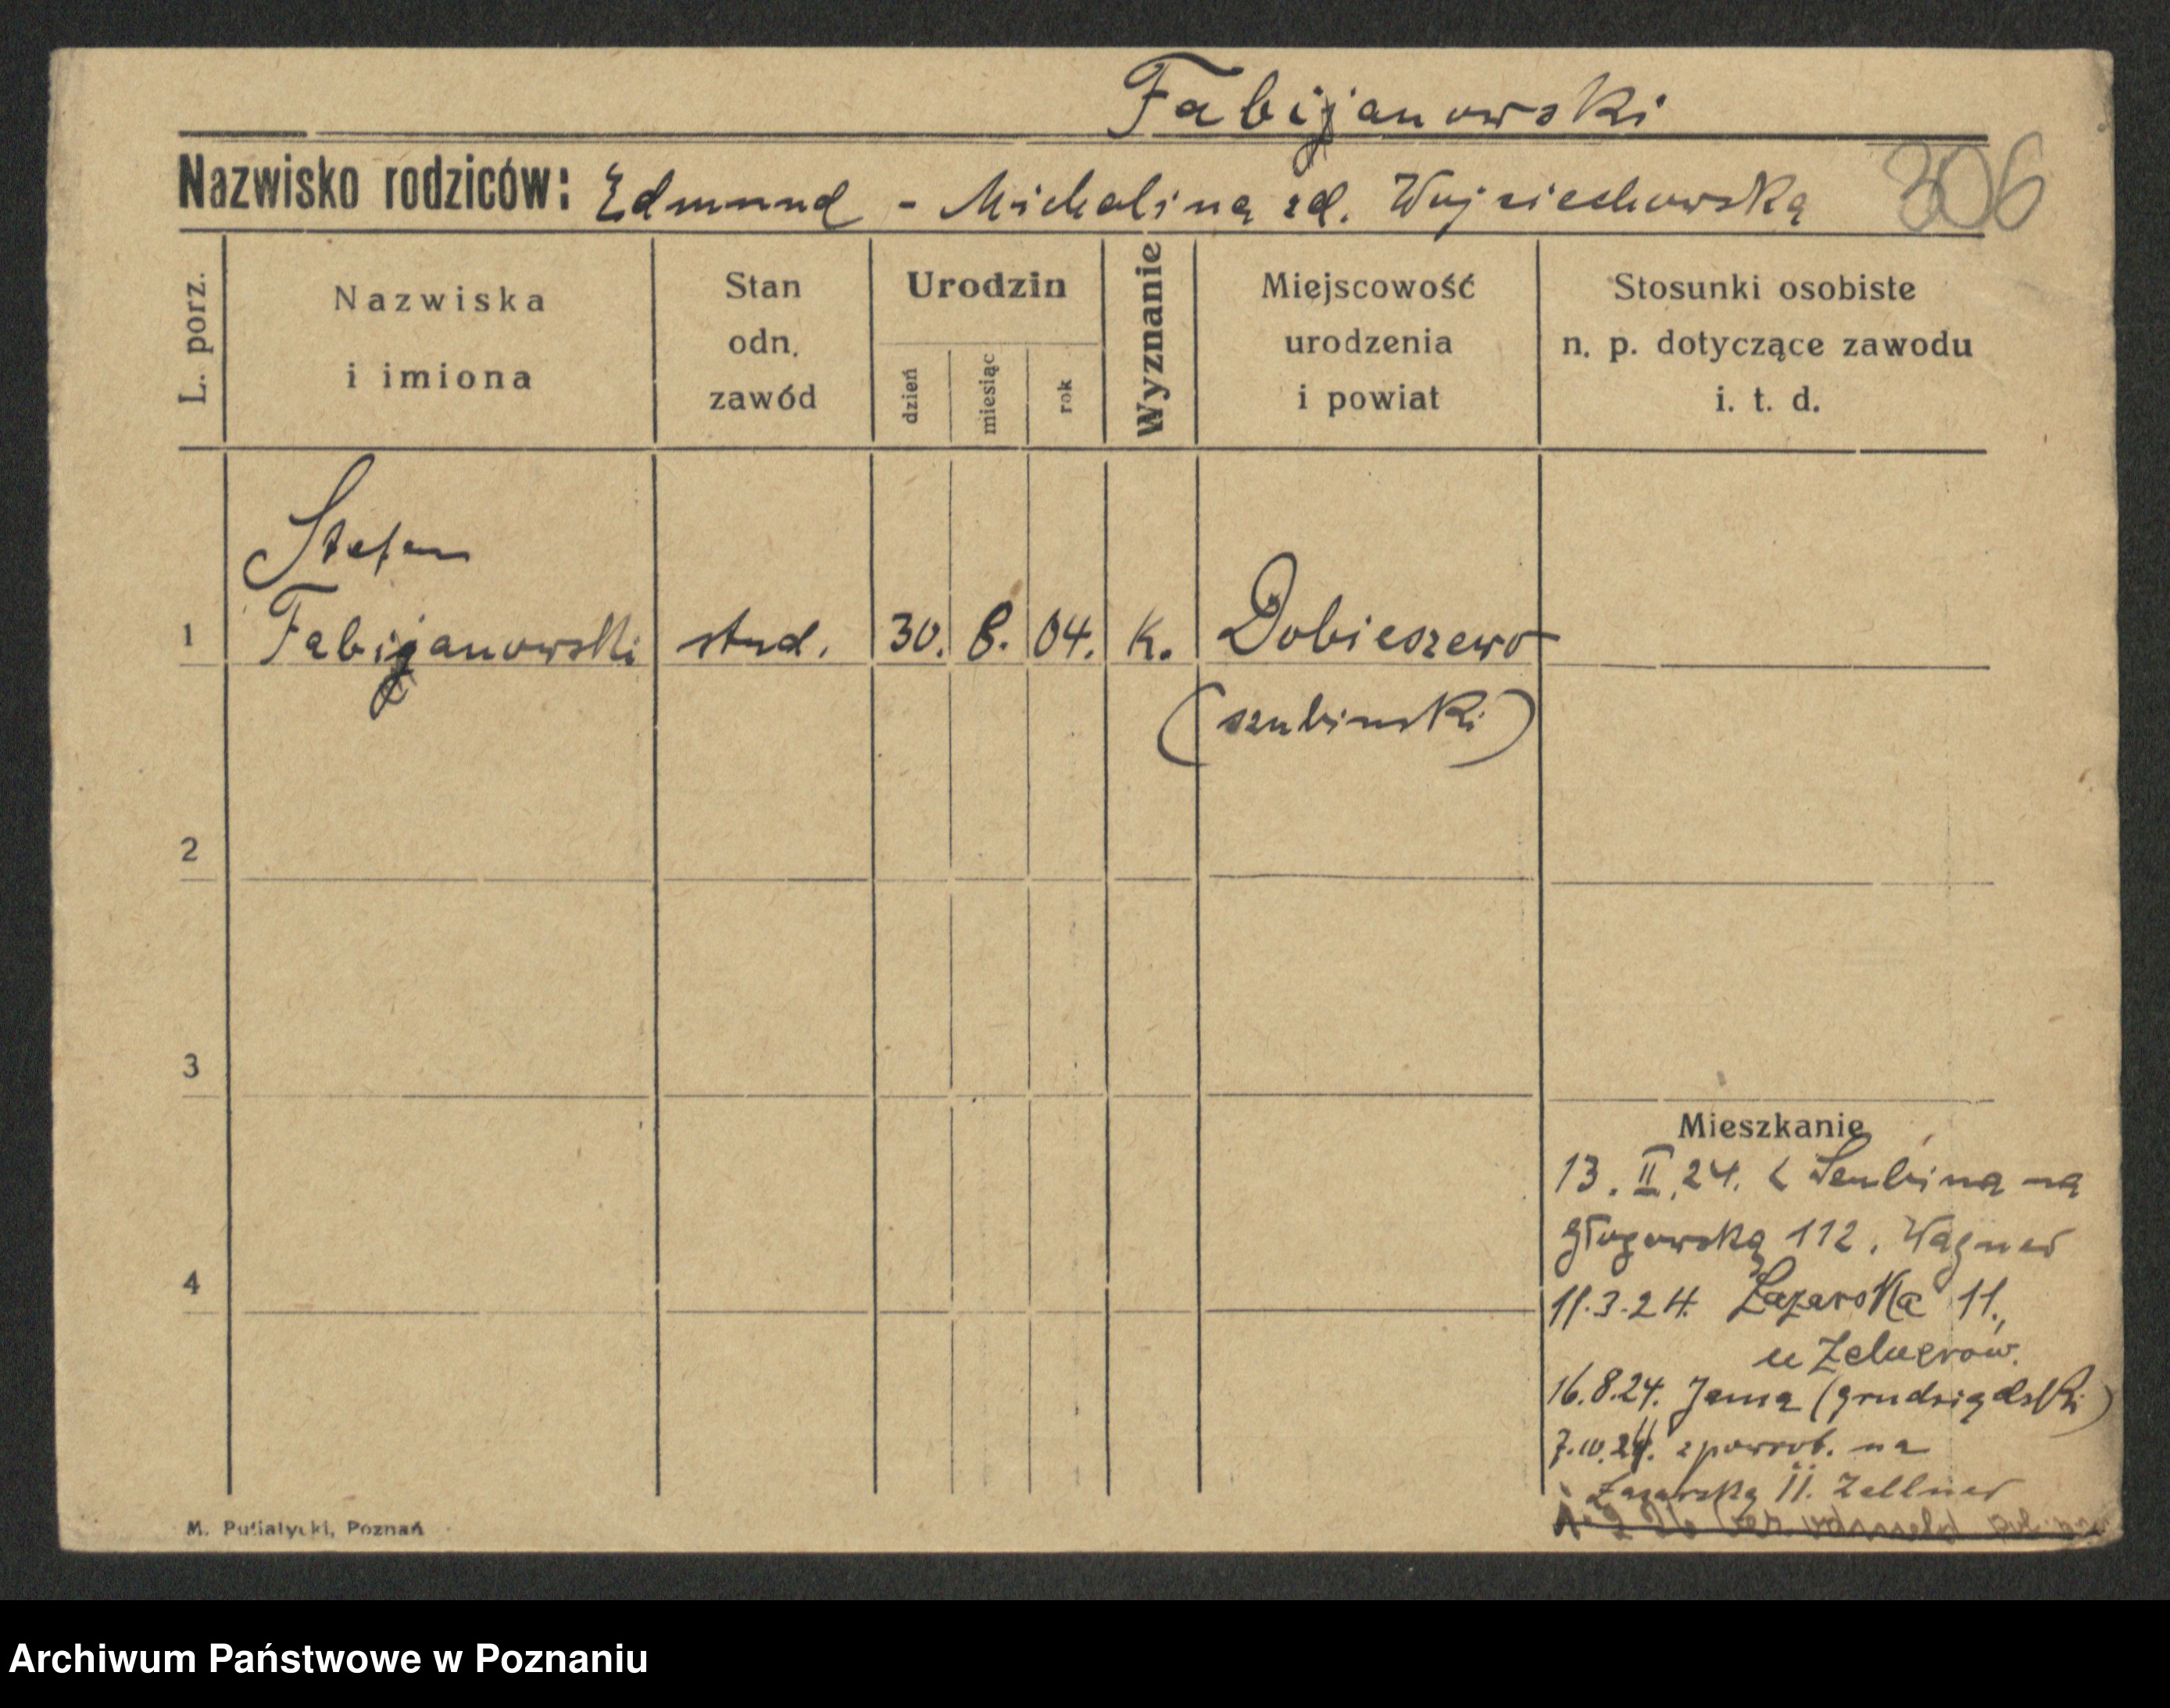 Fabijanowski
Nazwisko rodziców: Edmund - Michalina zd. Wojciechowska 306
L. porz.
Nazwiska
i imiona
Stan
odn.
zawód
Urodzin
dzień
miesiąc
rok
Wyznanie
Miejscowość
urodzenia
i powiat
Stosunki osobiste
n. p. dotyczące zawodu
i. t. d.
Stefan
1 Fabijanowski stud. 30. 8. 04. K. Dobieszewo
(szubinski)
2
3
Mieszkanie
13. II. 24. z Szubina na
głogowską 112. Wagner
4
11.3.24. Łazarska 11.,
u
16.8.24. Jama (grudziądzki)
7.10.24. z powrot. na
Łazarską 11. Zellner
M. Putiatycki, Poznań
Archiwum Państwowe w Poznaniu